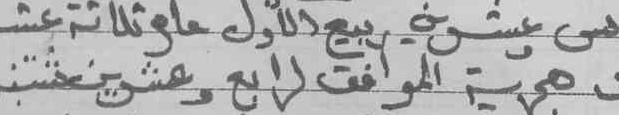 وعشرين ربيع الأول عام ثلاثة عشر
هجرية الموافق لرابع وعشرين غشت